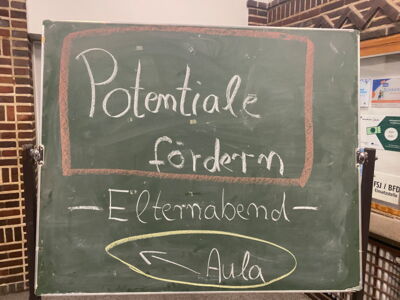 Potentiale
fördern
- Elternabend -
Aula
FSJ / BFD